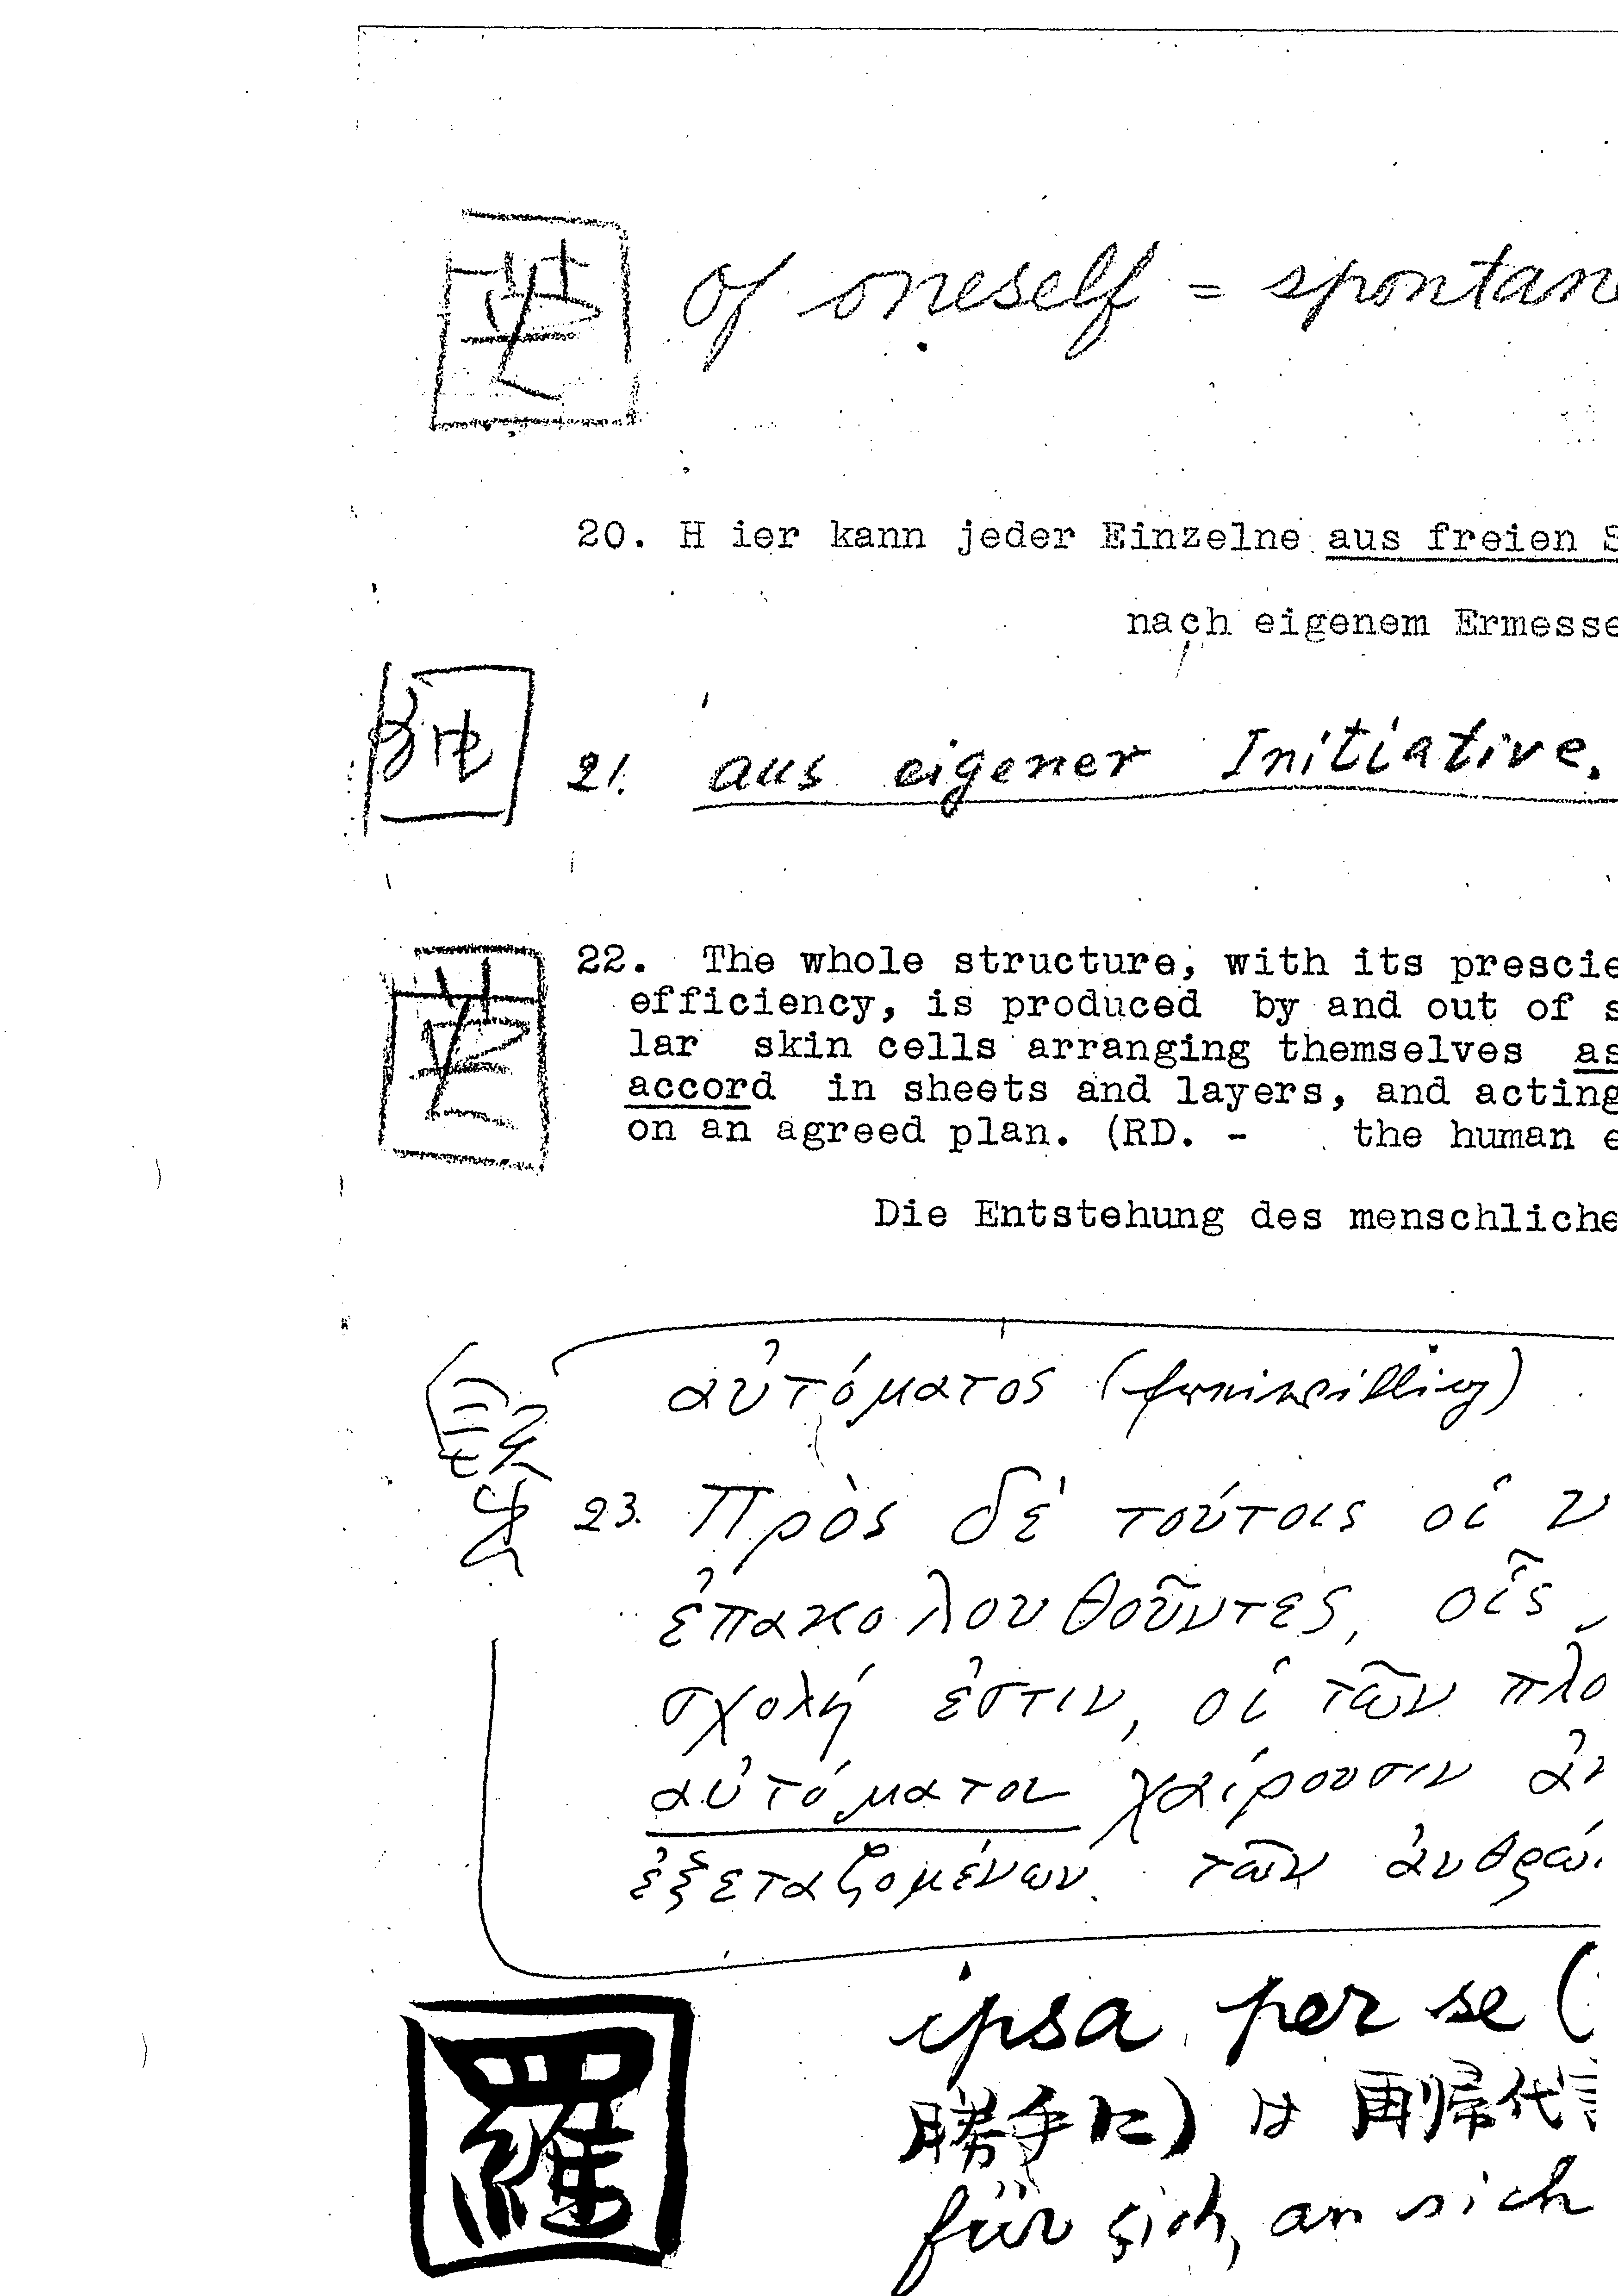 英 of oneself = spontane
20. H ier kann jeder Einzelne aus freien S
nach eigenem Ermesse
独 21. aus eigener Initiative.
英 22. The whole structure, with its prescie
efficiency, is produced by and out of s
lar skin cells arranging themselves as
accord in sheets and layers, and acting
on an agreed plan. (RD. - the human e
Die Entstehung des menschliche
αὐτόματος (freiwillig)
23. Πρὸς δὲ τούτοις οἱ ν
ἐπακολουθοῦντες, οἷς
σχολή ἐστιν, οἱ τῶν πλο
αὐτόματοι χαίρουσιν ἀκ
ἐξεταζομένων τῶν ἀνθρώ
羅 ipsa per se (
勝手に) は 再帰代
für sich, an sich